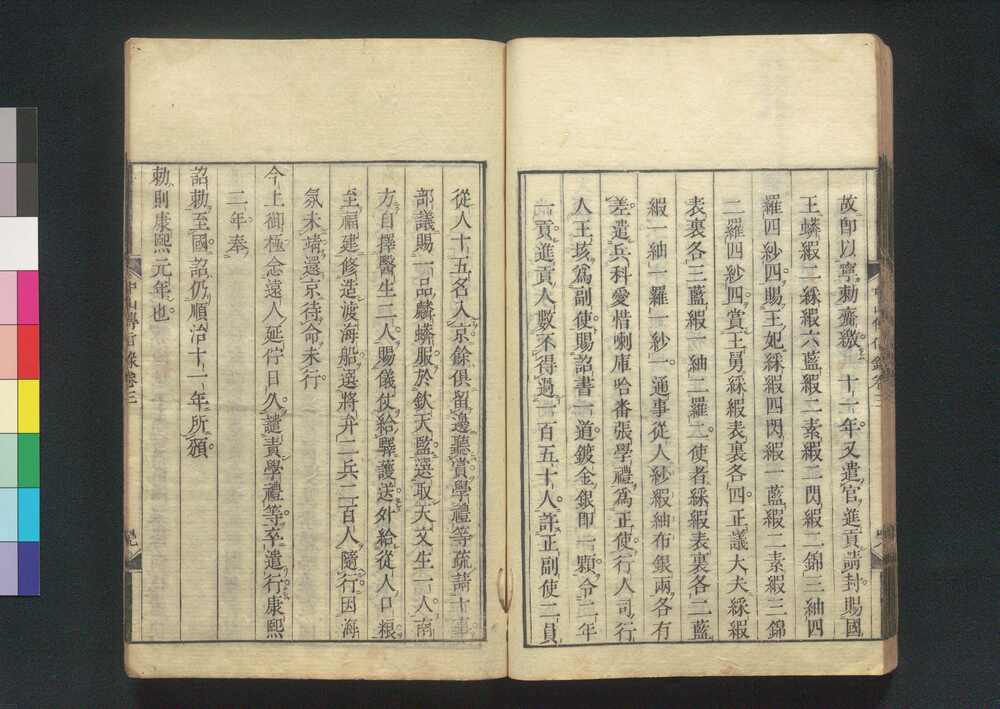 故即以寧勅齎繳。十一年又遣官進貢請封賜國
王蟒緞二綵緞六藍緞二素緞二閃緞二錦三紬四
羅四紗四。賜王妃綵緞四閃緞一藍緞二素緞三錦
二羅四紗四。賞王舅綵緞表裏各四。正議大夫綵緞
表裏各三藍緞一紬二羅二使者綵緞表裏各二藍
緞一紬一羅一紗一。通事從人紗緞紬布銀兩各有
差。遣兵科愛惜喇庫哈番張學禮爲正使。行人司行
人王垓爲副使。賜詔書一道鍍金銀印一顆。令二年
一貢。進貢人數不得過一百五十人。許正副使二員
從人十五名入京。餘俱留邊聽賞。學禮等疏請十事
部議賜一品麟蟒服。於欽天監選取天文生一人南
方自擇醫生二人。賜儀仗給驛護送。外給從人口糧
至福建修造渡海船。選將弁二兵二百人隨行。因海
氛未靖。還京待命。未行。
今上御極念遠人延佇日久。譴責學禮等。卒遣行。康熙
二年。奉
詔勅至國。詔仍順治十一年所頒
勅則康熙元年也。
中山傳信錄卷三
中山傳信錄卷三